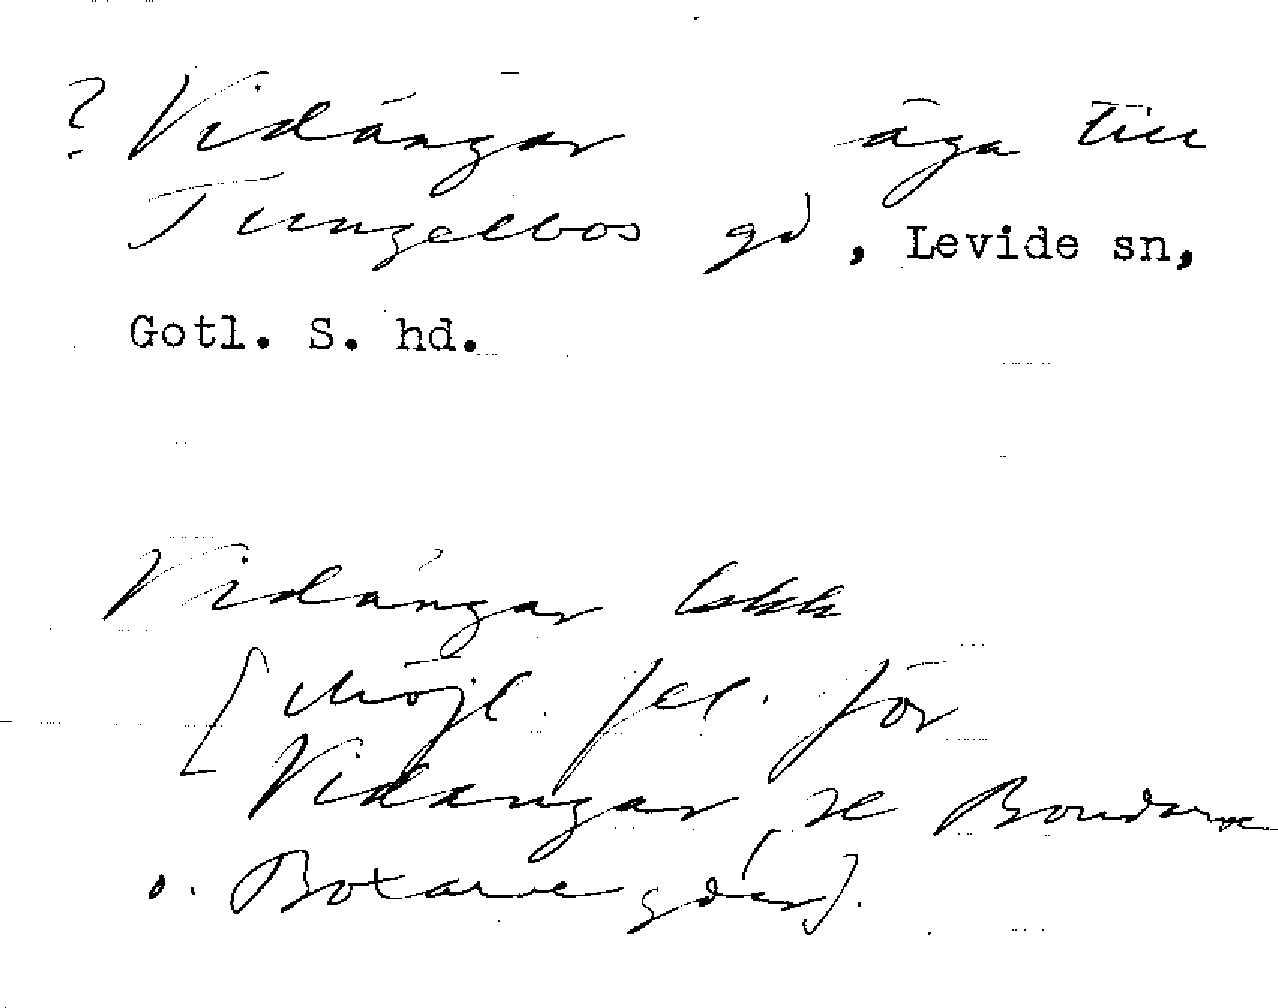 ? Vidängar äga till
Tungelbos gd, Levide sn,
Gotl. S. hd.
Vidángar lskk
[Möjl. fel. för
Vidangar, se Bondarve
o. Botarve gdar].